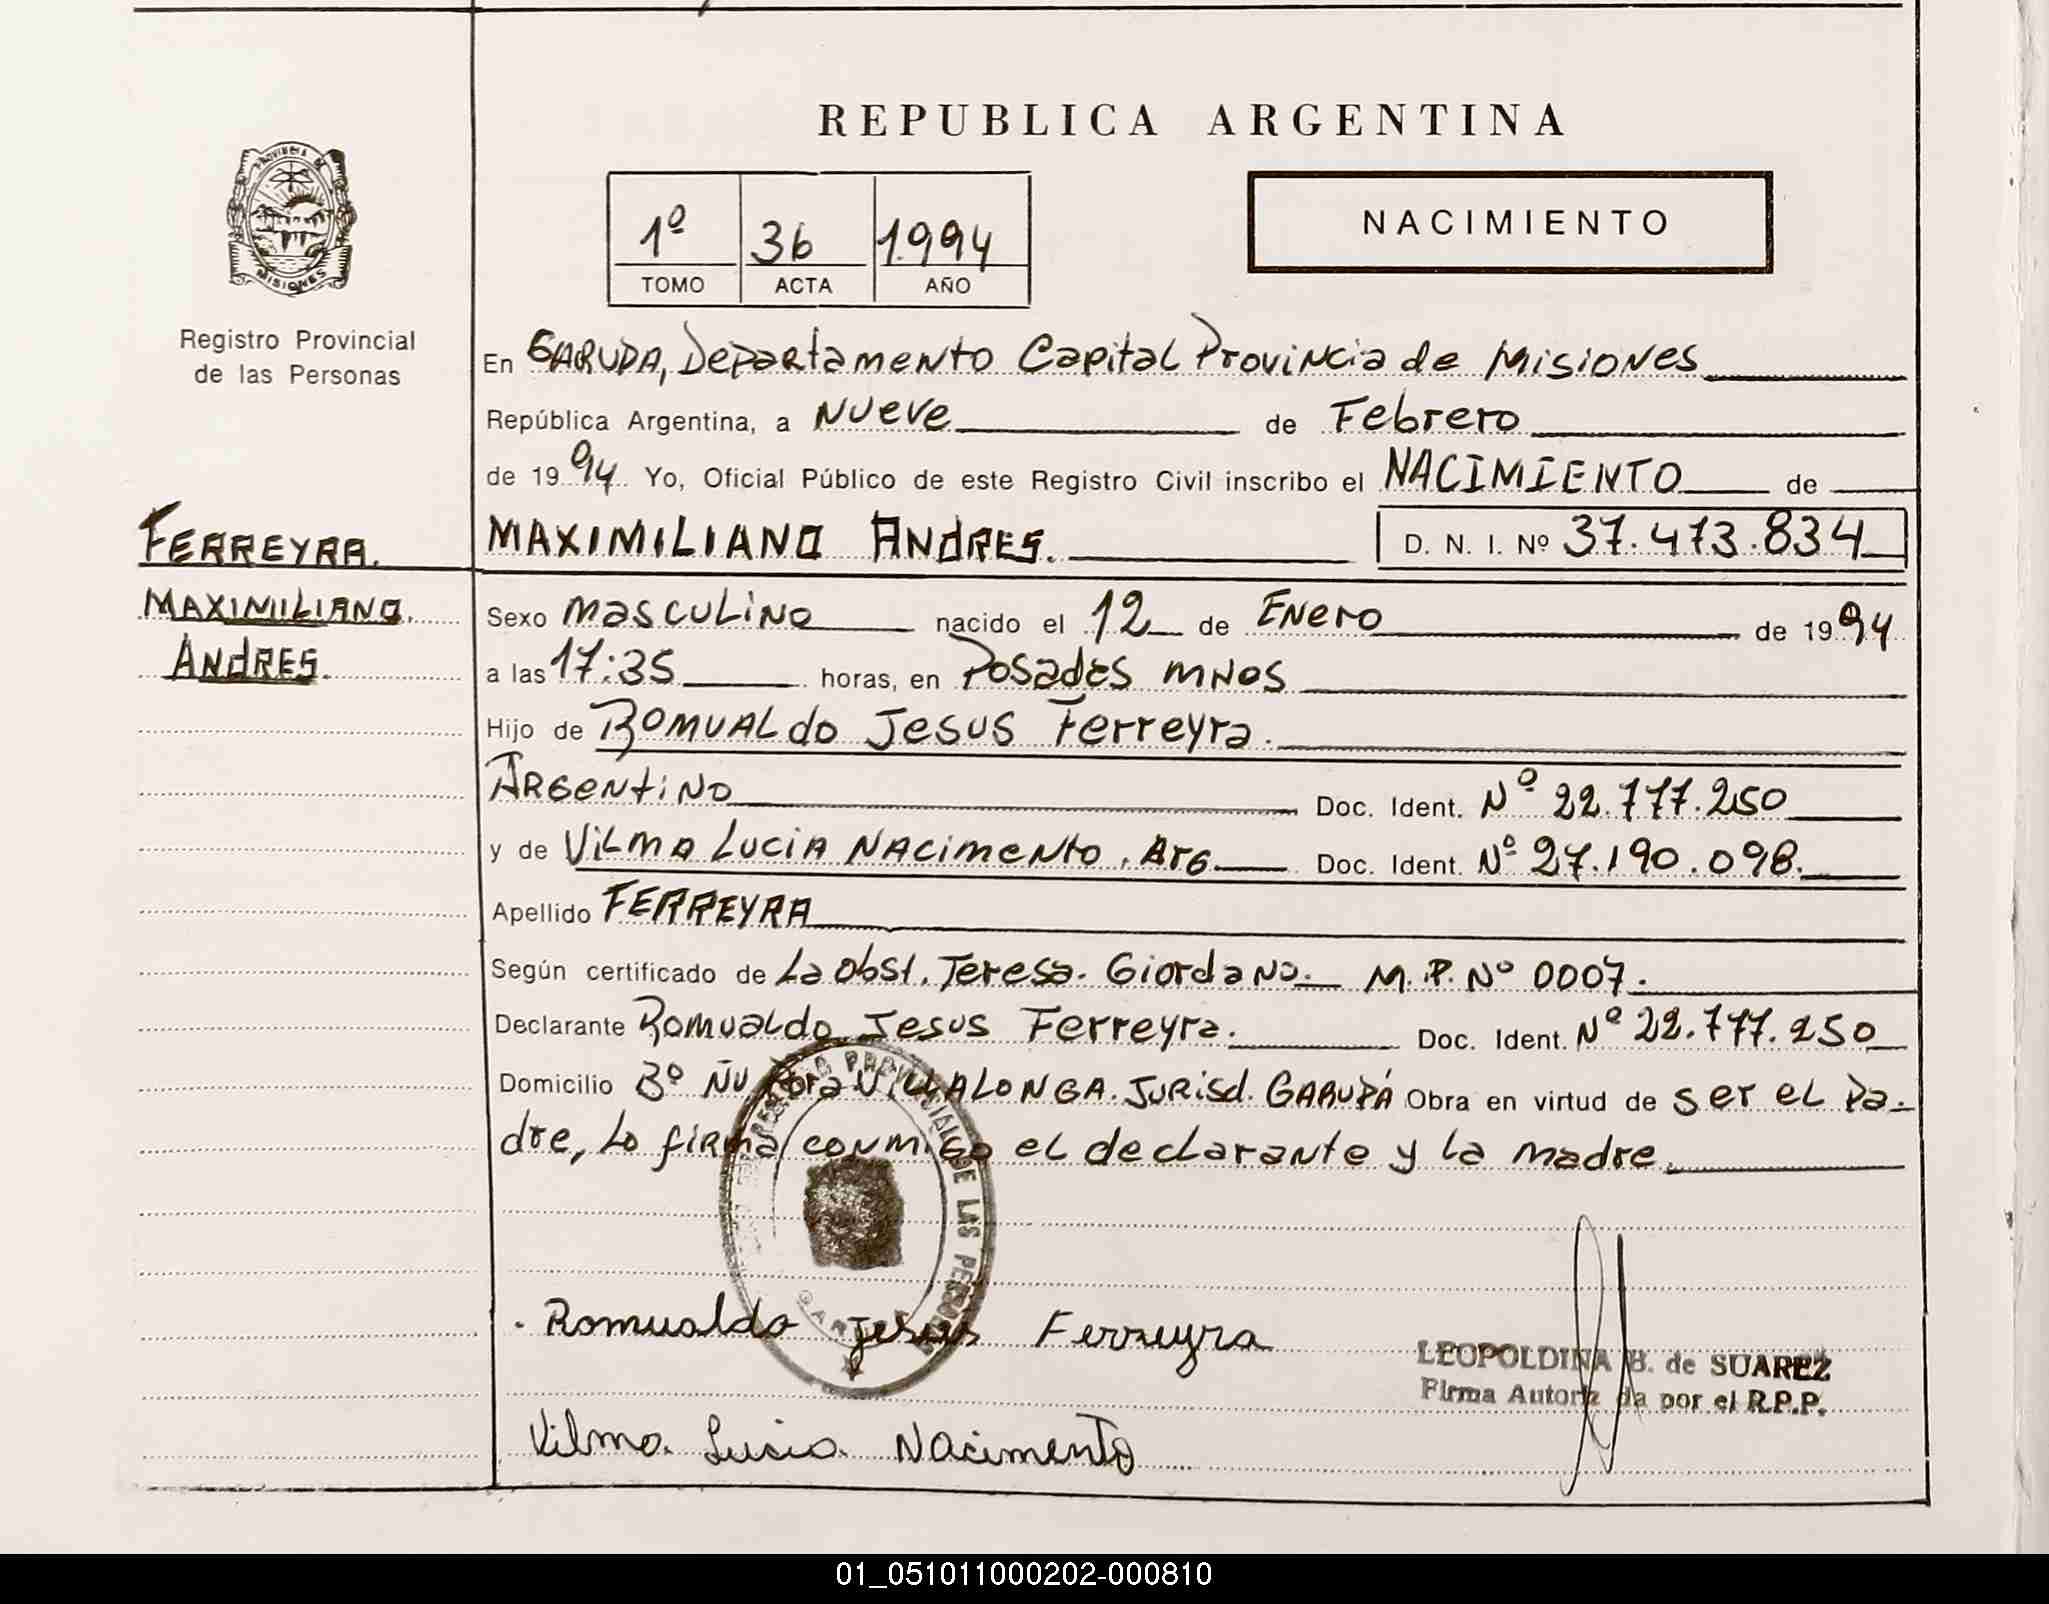 REPUBLICA ARGENTINA
PROVINCIA DE
MISIONES
Registro Provincial
de las Personas
1º 36 1.994
TOMO ACTA AÑO
NACIMIENTO
En GARUPA, Departamento Capital Provincia de Misiones
República Argentina, a Nueve de Febrero
de 1994 Yo, Oficial Público de este Registro Civil inscribo el NACIMIENTO de
FERREYRA.
MAXIMILIANO
ANDRES.
MAXIMILIANO ANDRES. D. N. I. Nº 37.473.834
Sexo masculino nacido el 12 de Enero de 1994
a las 17:35 horas, en Posadas mnes
Hijo de Romualdo Jesus Ferreyra.
Argentino Doc. Ident. Nº 22.777.250
y de Vilma Lucia Nacimento. Arg Doc. Ident. Nº 27.190.098.
Apellido FERREYRA
Según certificado de La obst. Teresa. Giordano. M.P. Nº 0007.
Declarante Romualdo Jesus Ferreyra. Doc. Ident. Nº 22.777.250
Domicilio Bº Ñu Pora VILLALONGA. Jurisd. GARUPÁ Obra en virtud de ser el Pa-
dre, Lo firma conmigo el declarante y la madre.
REGISTRO PROVINCIAL DE LAS PERSONAS
GARUPA
Romualdo Jesus Ferreyra
LEOPOLDINA B. de SUAREZ
Firma Autoriz da por el R.P.P.
Vilma Lucia Nacimento
01_051011000202-000810